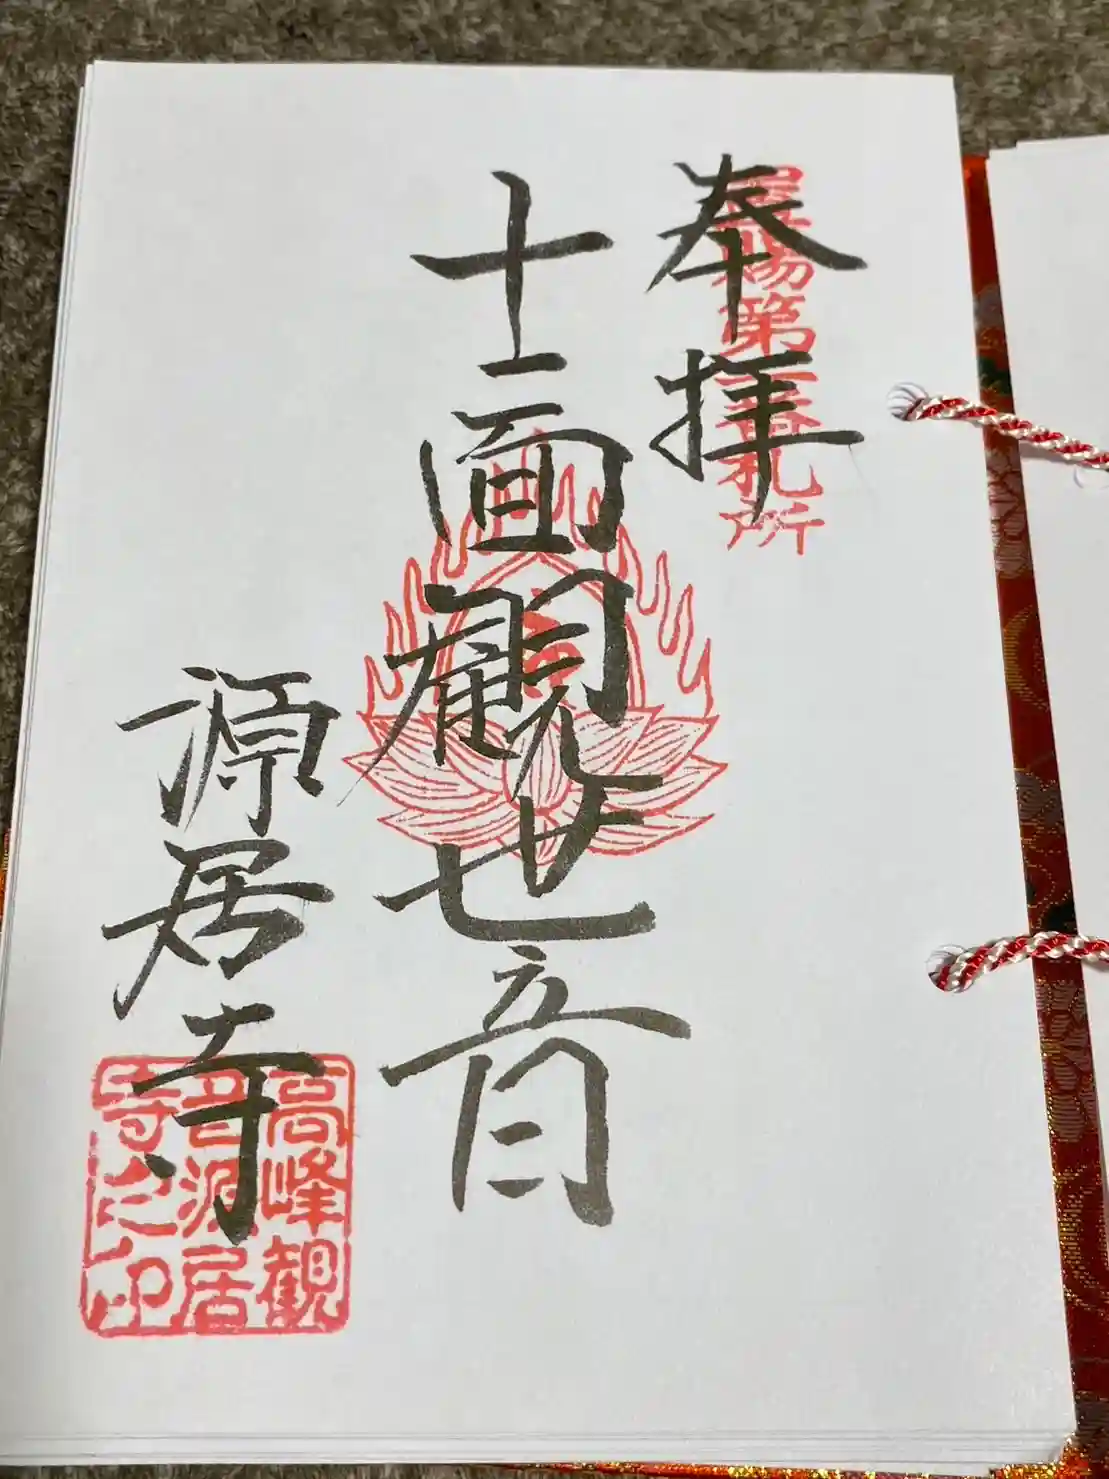 奉拝
第二番札所
十一面観世音
源居寺
高峰観
音源居
寺之印